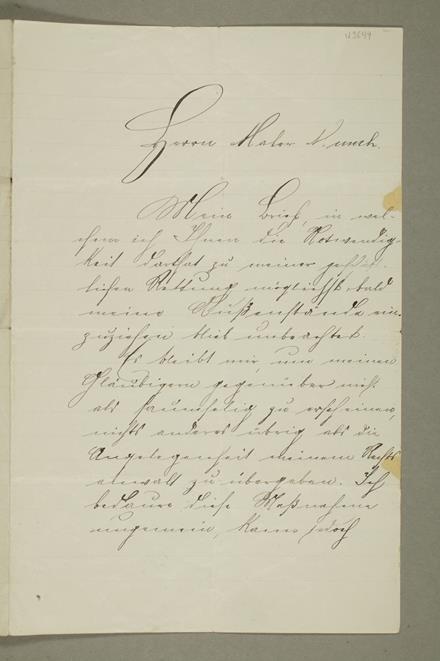 N 3649
Herrn Maler Munch.
Mein Brief, in wel-
chem ich Ihnen die Notwendig-
keit darthat zu meiner
lichen Rettung möglichst bald
meine Außenstände ein-
zuziehen blieb unbeachtet.
Es bleibt mir, um meinen
Gläubigern gegenüber nicht
als saumselig zu erscheinen,
nichts anderes übrig als die
Angelegenheit meinem Rechts
anwalt zu übergeben. Ich
bedaure diese Maßnahme
ungemein, kann jedoch